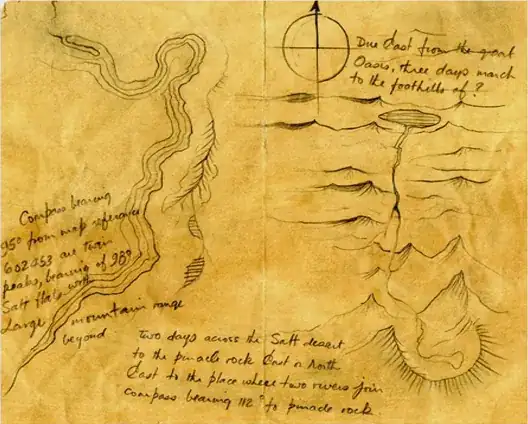 Due East from the
Oasis, three days march
to the foothills of ?
Compass bearing
95° from map reference
602453 are twin
peaks, bearing of 98°
Salt flats with
Large mountain range
beyond
Two days across the Salt desert
to the pinacle rock East or North
East to the place where two rivers join
compass bearing 112° to pinacle rock.